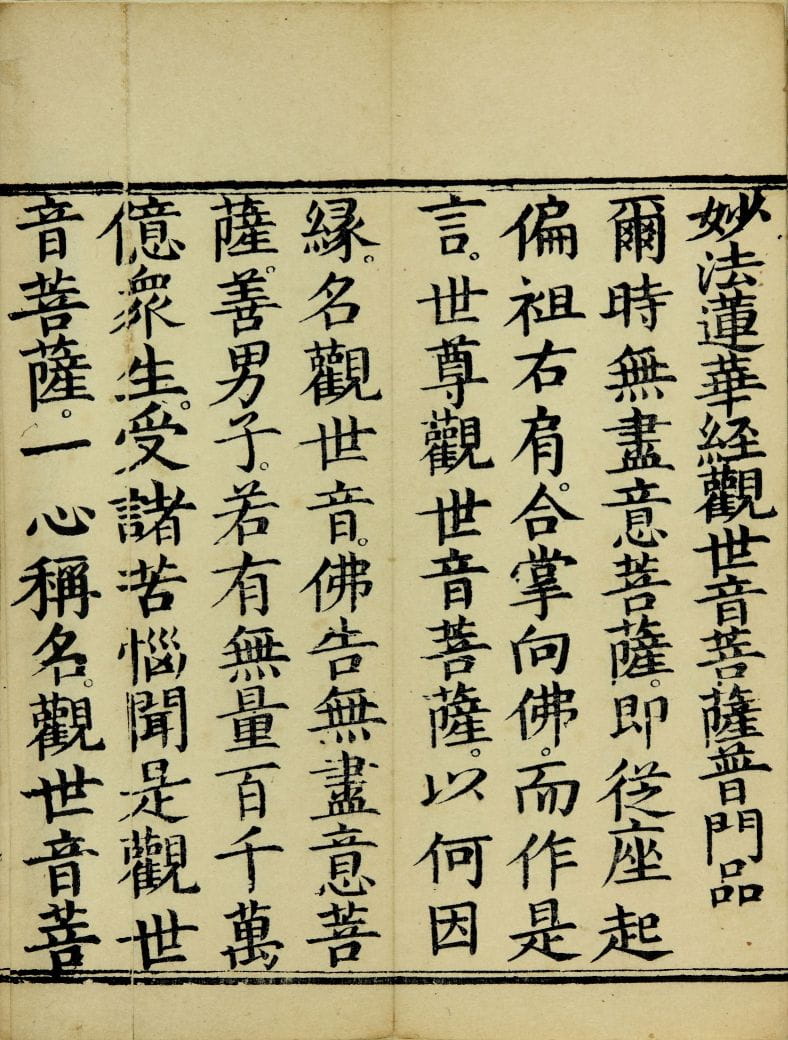 妙法蓮華経觀世音菩薩普門品
爾時無盡意菩薩。即從座起
偏袒右肩。合掌向佛。而作是
言。世尊觀世音菩薩。以何因
緣。名觀世音。佛告無盡意菩
薩。善男子。若有無量百千萬
億衆生。受諸苦惱聞是觀世
音菩薩。一心稱名。觀世音菩